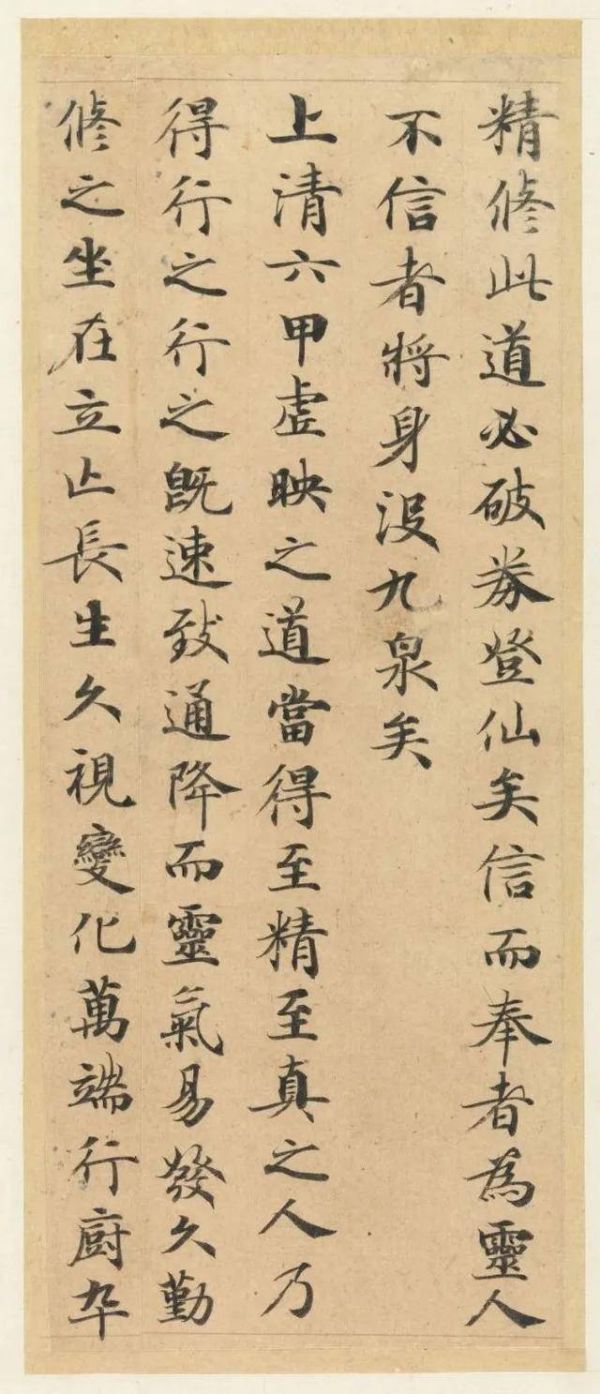 精脩此道必破券登仙矣信而奉者為靈人
不信者將身没九泉矣
上清六甲虚映之道當得至精至真之人乃
得行之行之既速致通降而靈氣易發久勤
脩之坐在立亡長生久視變化萬端行廚卒